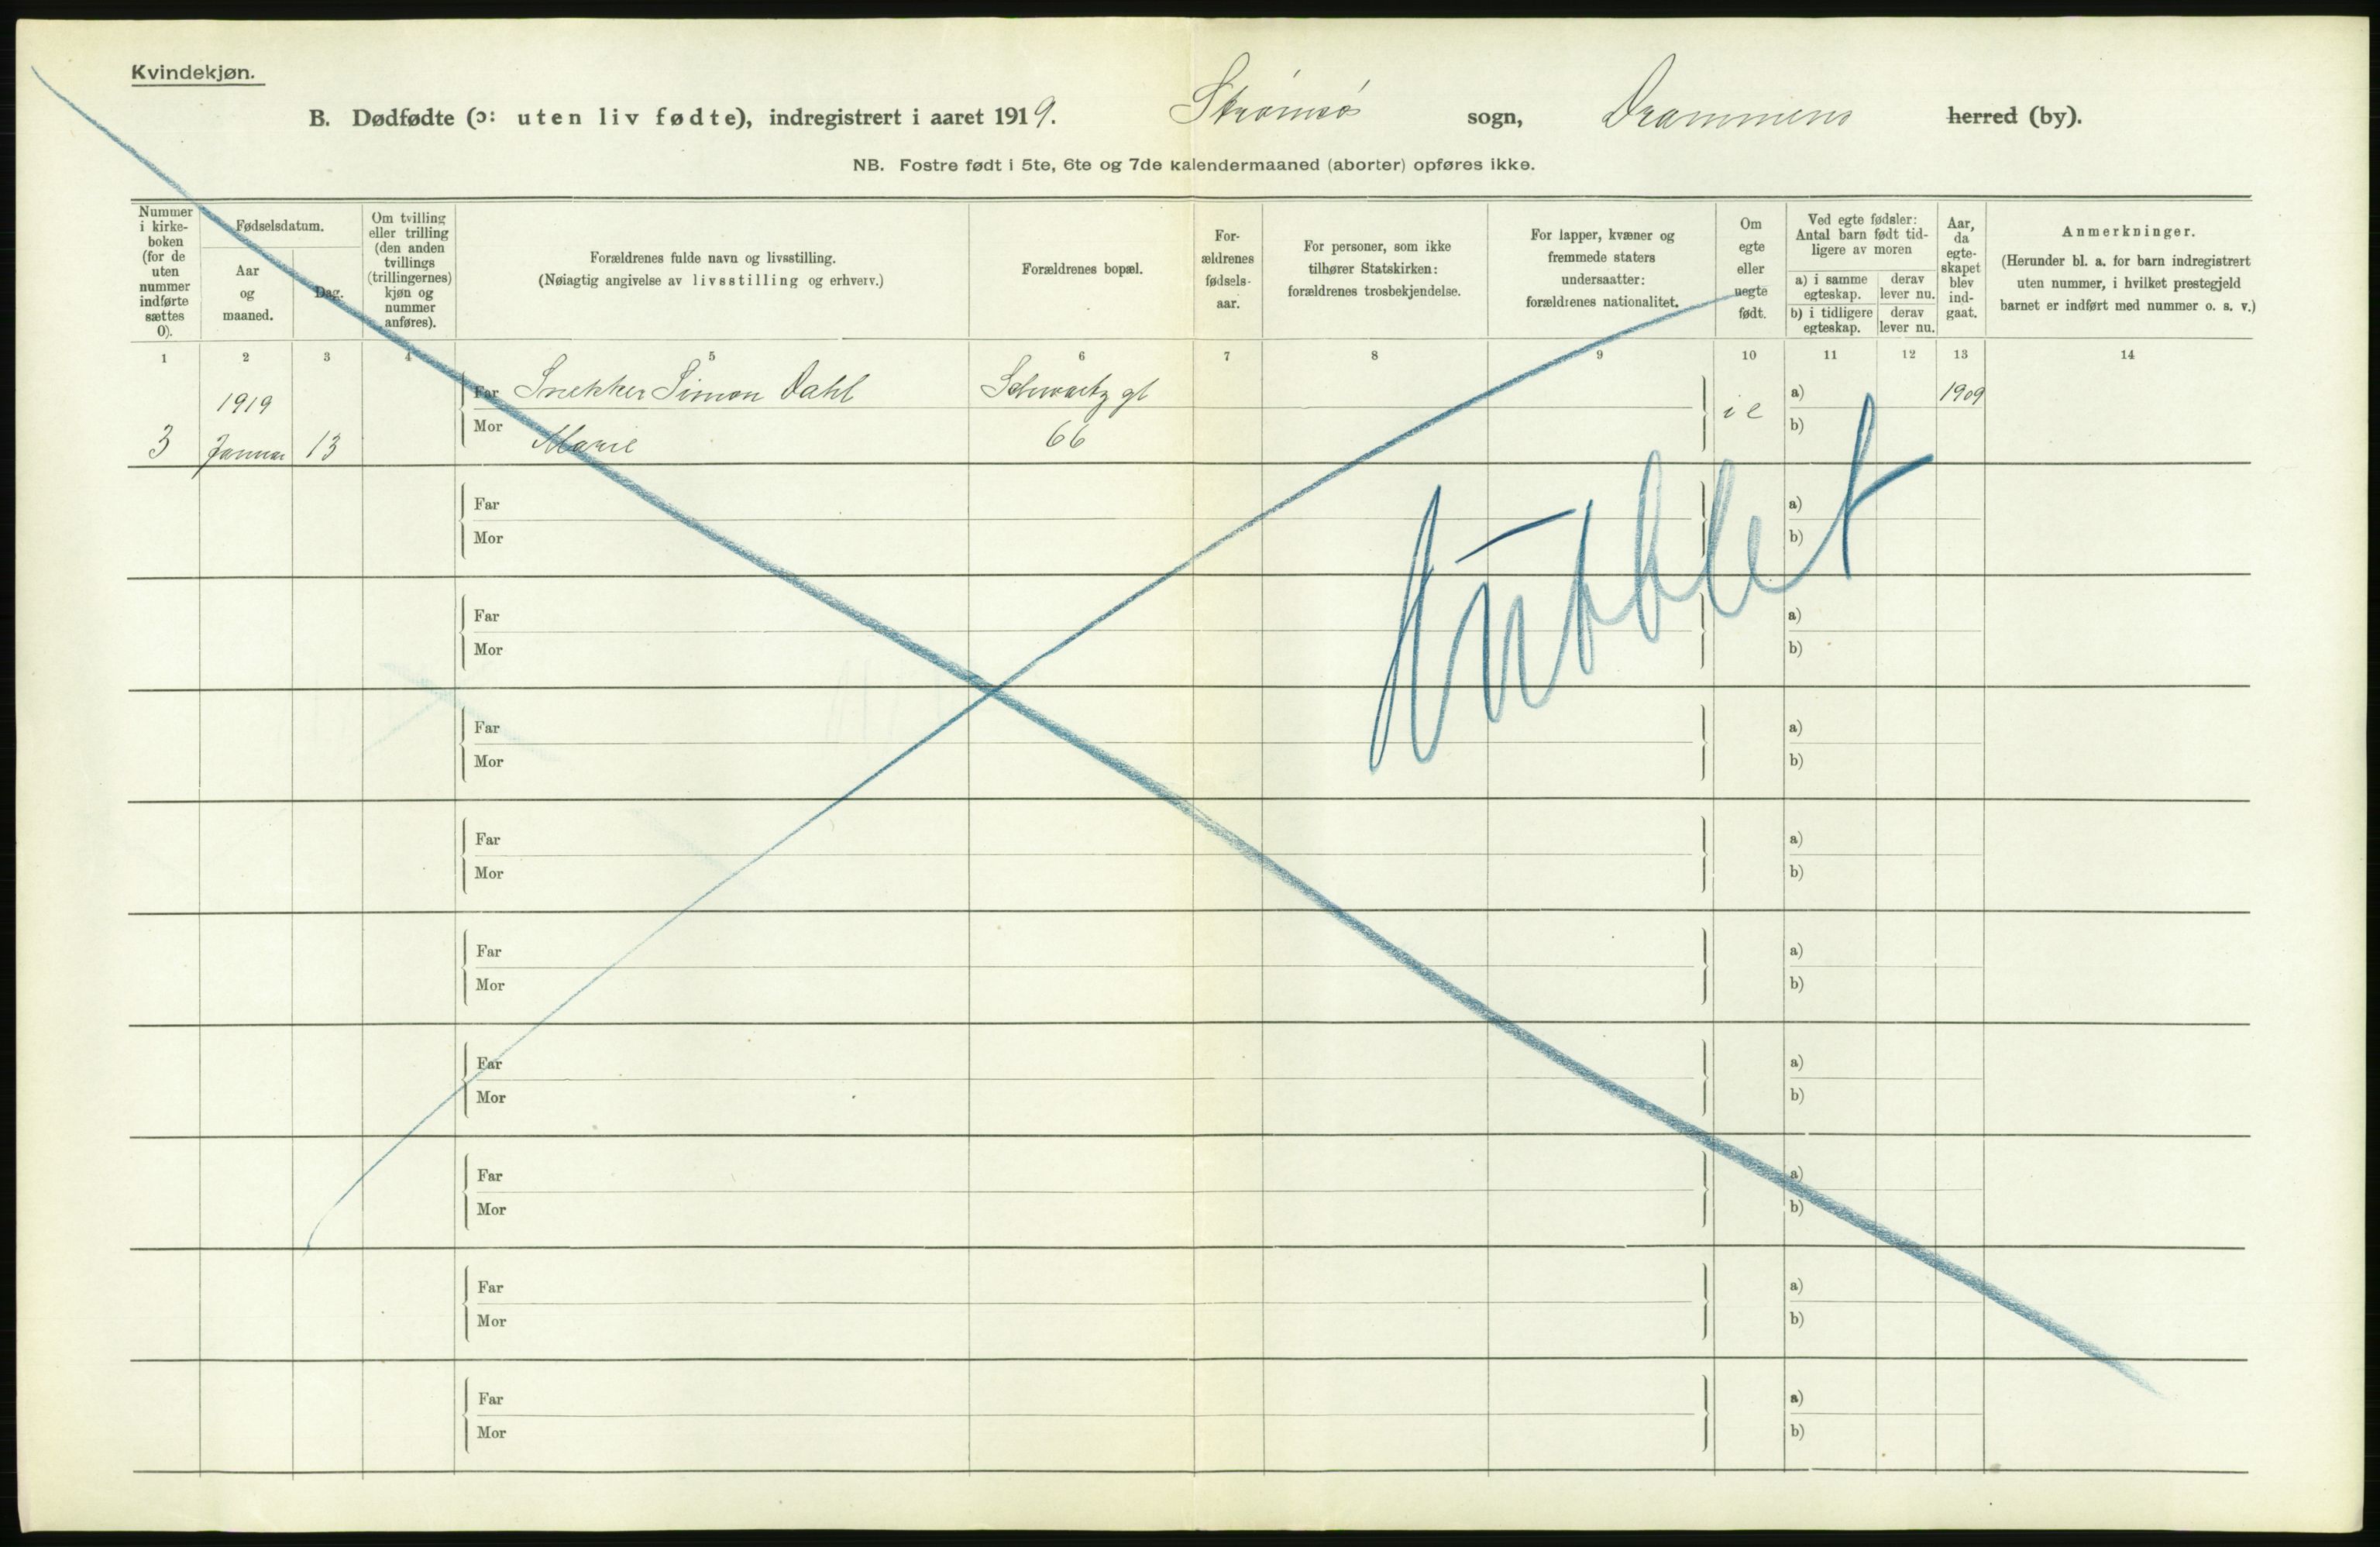 Kvindekjøn.
B. Dødfødte (ɔ: uten liv fødte), indregistrert i aaret 1919. Strømsø sogn, Drammens herred (by).
NB. Fostre født i 5te, 6te og 7de kalendermaaned (aborter) opføres ikke.
Nummer
i kirke-
boken
(for de
uten
nummer
indførte
sættes
0).
Fødselsdatum.
Aar
og
maaned.
Dag.
Om tvilling
eller trilling
(den anden
tvillings
(trillingernes)
kjøn og
nummer
anføres).
Forældrenes fulde navn og livsstilling.
(Nøiagtig angivelse av livsstilling og erhverv.)
Forældrenes bopæl.
For-
ældrenes
fødsels-
aar.
For personer, som ikke
tilhører Statskirken:
forældrenes trosbekjendelse.
For lapper, kvæner og
fremmede staters
undersaatter:
forældrenes nationalitet.
Om
egte
eller
uegte
født.
Ved egte fødsler:
Antal barn født tid-
ligere av moren
a) i samme
egteskap.
derav
lever nu.
b) i tidligere
egteskap.
derav
lever nu.
Aar,
da
egte-
skapet
blev
ind-
gaat.
Anmerkninger.
(Herunder bl. a. for barn indregistrert
uten nummer, i hvilket prestegjeld
barnet er indført med nummer o. s. v.)
1 2 3 4 5 6 7 8 9 10 11 12 13 14
1919 Far Snekker Simon Dahl Schwartz gt a) 1909
3 Januar 13 Mor Marie 66 i e b)
Far a)
Mor b)
Far a)
Mor b)
Far a)
Mor b)
Far a)
Mor b)
Far a)
Mor b)
Far a)
Mor b)
Far a)
Mor b)
Far a)
Mor b)
Far a)
Mor b)